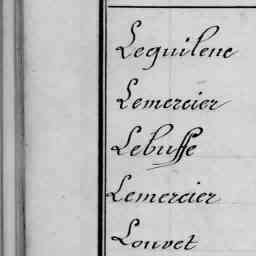 Leguilene
Lemercier
Lebuffe
Lemercier
Louvet